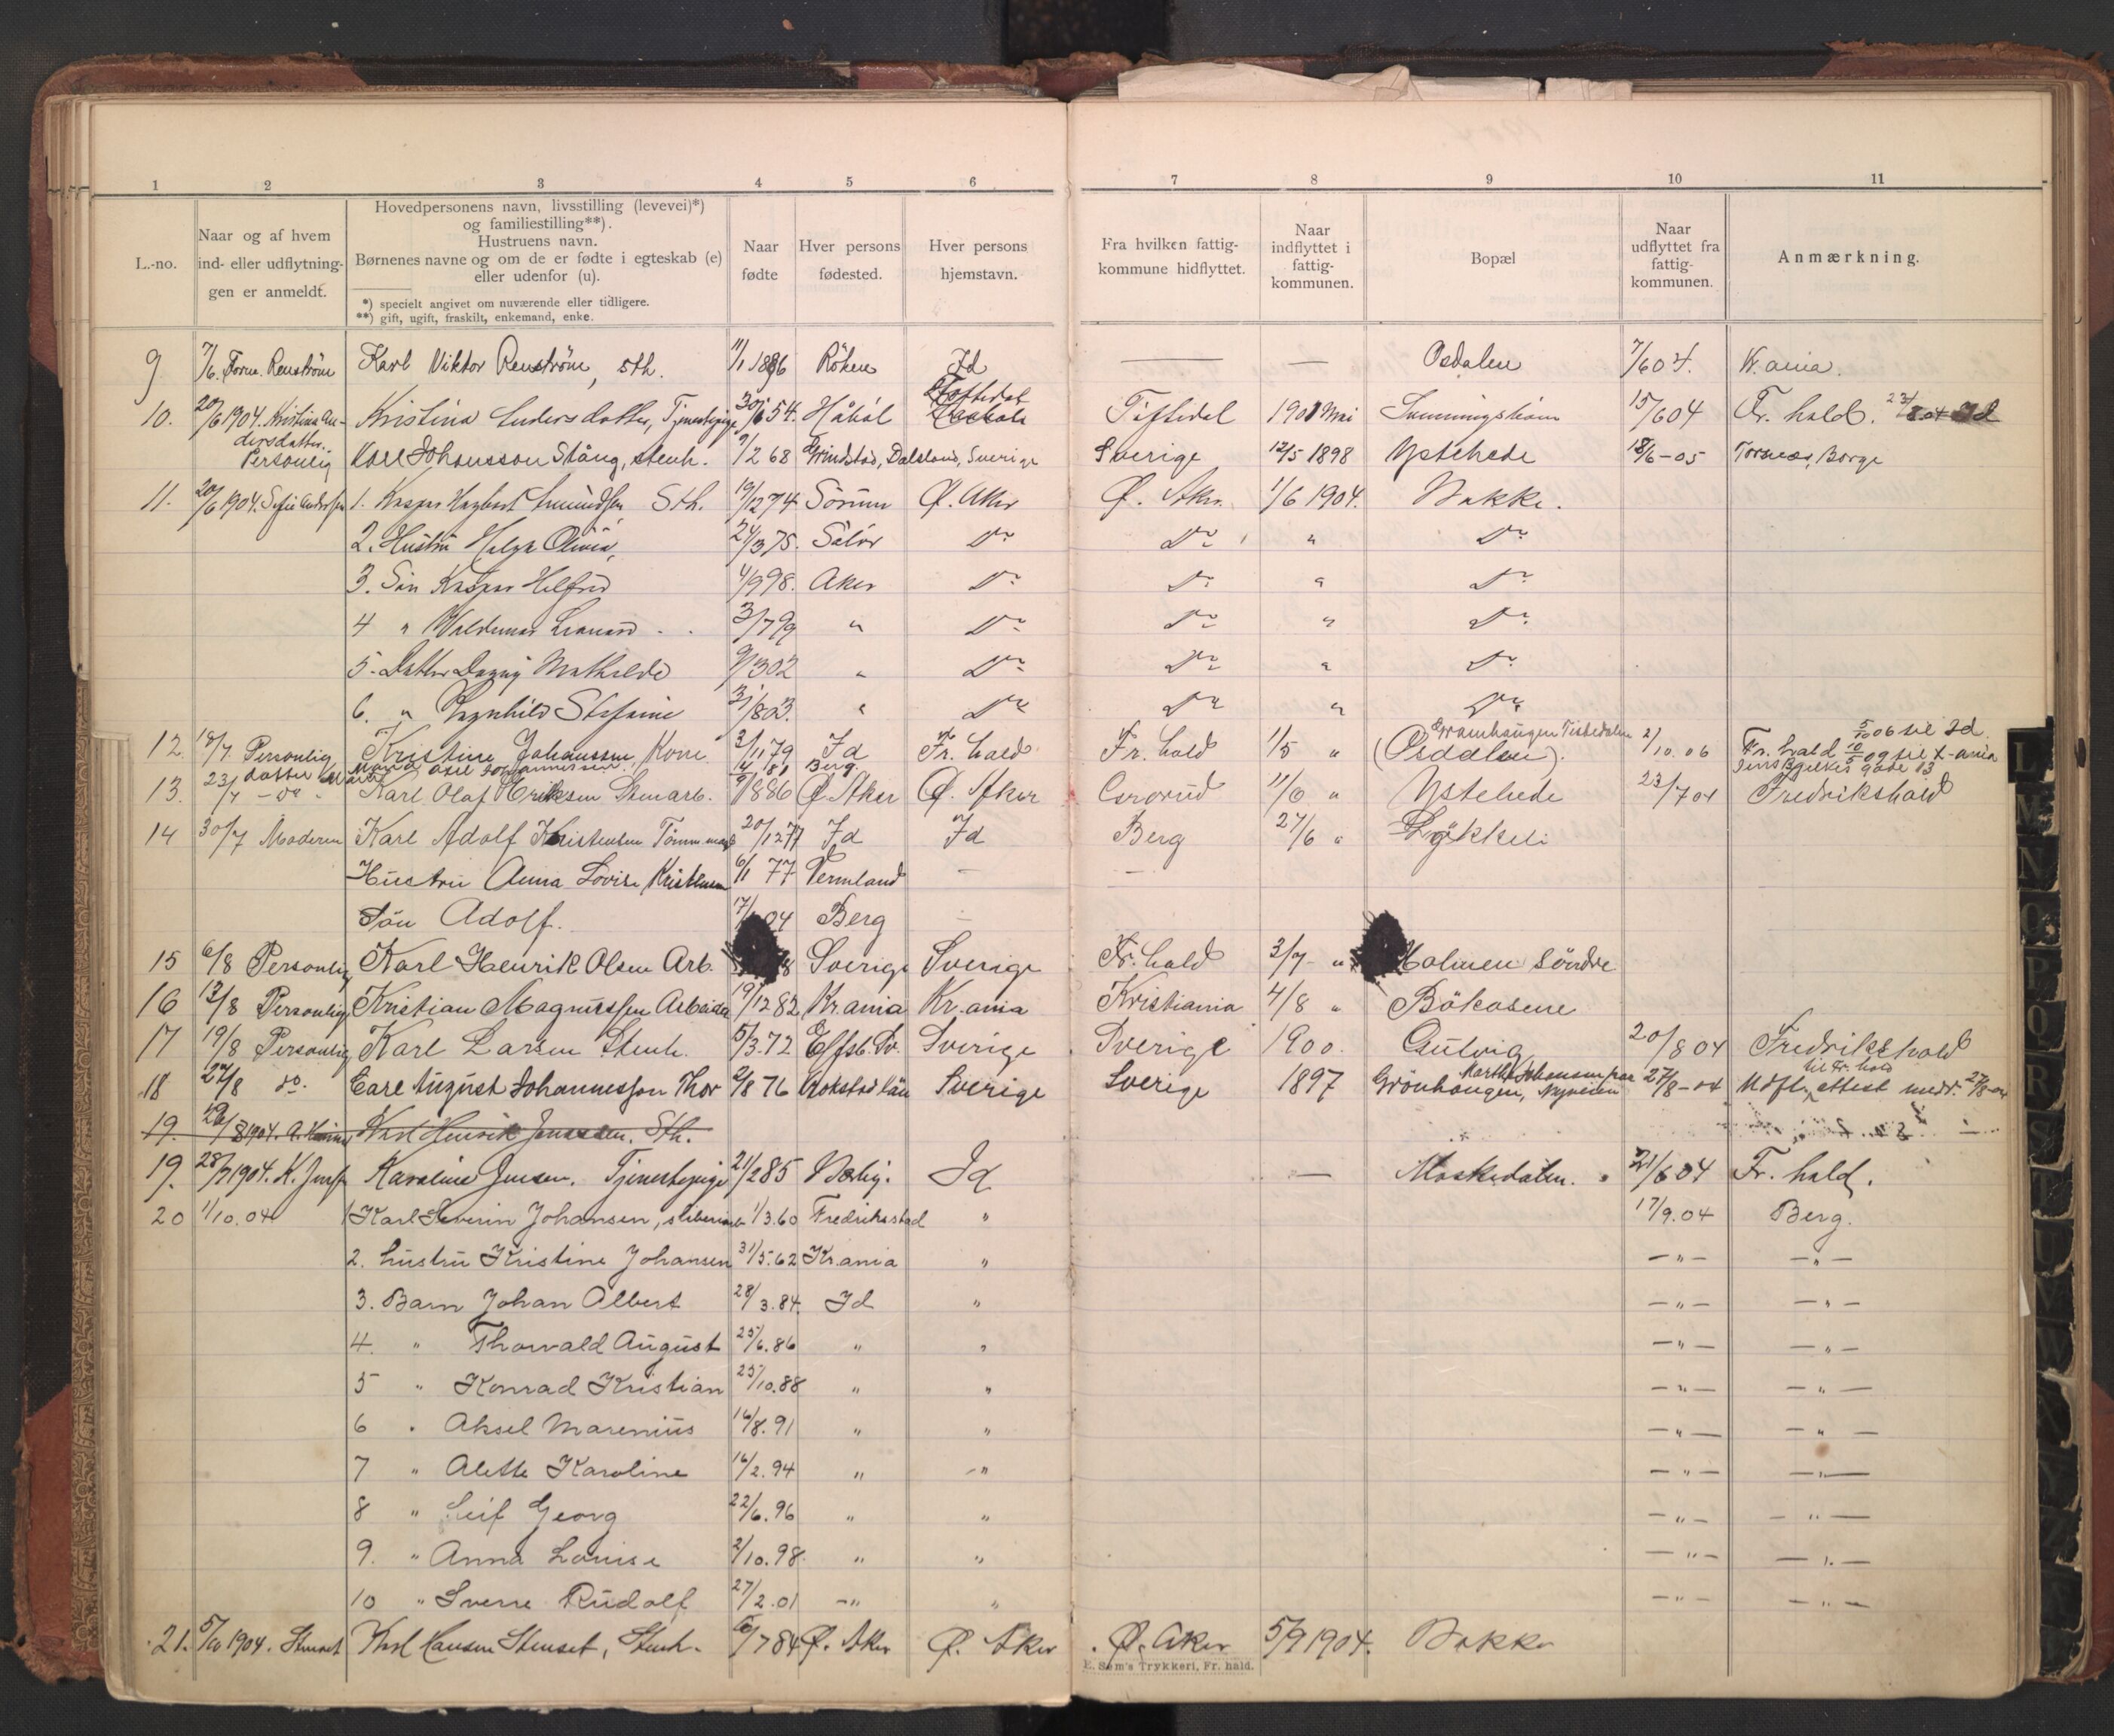 1 2 3 4 5 6 7 8 9 10 11
L.-no.
Naar og af hvem
ind- eller udflytnin-
gen er anmeldt.
Hovedpersonens navn, livsstilling (levevei)*)
og familiestilling**).
Hustruens navn.
Børnenes navne og om de er fødte i egteskab (e)
eller udenfor (u).
*) specielt angivet om nuværende eller tidligere.
**) gift, ugift, fraskilt, enkemand, enke.
Naar
fødte
Hver persons
fødested.
Hver persons
hjemstavn.
Fra hvilken fattig-
kommune hidflyttet.
Naar
indflyttet i
fattig-
kommunen.
Bopæl
Naar
udflyttet fra
fattig-
kommunen.
Anmærkning.
9 7/6. Renström Karl Viktor Renström, sth. 11/1 1886 Id — — Osdalen 7/6 04. Kr.ania.
10. 20/6 1904. Kristina An- Kristina Andersdatter, Tjenestepige 30/6 54. Håbol Töftedal 1901 Mai 15/6 04 Fr. hald.
dersdatter.
Personlig Karl Johansson Stång, stenh. 9/2 68 Grindstad, Dalsland, Sverige Sverige 12/5 1898 Ystehede 18/6-05 Torsnes, Borge
11. 20/6 1904. 1. Kaspar Amundsen Sth. 19/12 74 Sörum Ø. Aker Ø. Aker 1/6 1904. Bakke.
2. Hustru Helga Olivia, 24/3 75. Solør Do Do " Do
3. Sön Kaspar Helfred 4/9 98. Aker Do Do " Do
4 " Valdemar Leonard 3/7 99 " Do Do " Do
5. Datter Dagny Mathilde 9/3 02 " Do Do " Do
6. " Ragnhild Stefanie 31/8 03. " Do Do " Do
12. 18/7 Personlig Kristine Johanssen, Kone 3/11 79 Id Fr. hald Fr. hald 1/5 " Grønhaugen Tistedalen (Osdalen). 2/10.06 Fr. hald
13. 23/7 - do - Karl Olaf Eriksen Stenarb. 9/1 886 Ø. Aker Ø. Aker Grorud 11/6 " Ystehede 23/7 04 Fredrikshald
14 30/7 Moderen Karl Adolf Kristensen Tömm.mand 20/12 77 Id Id Berg 27/6 " Lökkeli
Hustru Anna Lovise Kristensen 6/1 77 Vermland — —
Sön Adolf. 04 Berg —
15 6/8 Personlig Karl Henrik Olsen Arb. Sverige Sverige Fr. hald 3/7 " Holmen söndre
16 13/8 Personlig Kristian Magnussen Arbeider 19/12 82 Kr.ania Kr.ania Kristiania 4/8 " Bökasene
17 19/8 Personlig Karl Larsen Stenh. 5/3.72 Elfsb. Sv. Sverige Sverige 1900. Gutvig 20/8 04 Fredrikshald
18 27/8 do. Carl August Johannesson Thor 2/8 76 Sverige Sverige 1897 Grönhaugen, Nyveien 27/8-04 Udfl. attest medr. 27/8-04
til Fr. hald
19. 26/8 1904. Karl Henrik Jonassen. Sth.
19. 28/7 1904. K. Jensen Karoline Jensen. Tjenestepige 21/2 85 Id — Moskedalen. 21/6 04 Fr. hald.
20 1/10.04 1 Karl Severin Johansen, sliberiarb 1/3.60 Fredriksstad " 17/9.04 Berg.
2. hustru Kristine Johansen 31/5.62 Kr.ania " —"— —"—
3. Barn Johan Albert 28/3.84. Id " —"— —"—
4. " Thorvald August 25/6.86 " " —"— —"—
5 " Konrad Kristian 25/10.88 " " —"— —"—
6 " Aksel Marenius 16/8.91 " " —"— —"—
7 " Alette Karoline 16/2.94 " " —"— —"—
8 " Leif Georg 22/6.96 " " —"— —"—
9. " Anna Louise 2/10.98. " " —"— —"—
10 " Sverre Rudolf 27/2.01 —" " —"— —"—
21. 5/10 1904. Stenset Karl Hansen Stenset, Stenh. 6/7 84 Ø. Aker Ø. Aker Ø. Aker 5/9 1904. Bakke
E. Sem's Trykkeri, Fr. hald.
L
M
N
O
P
Q
R
S
T
U